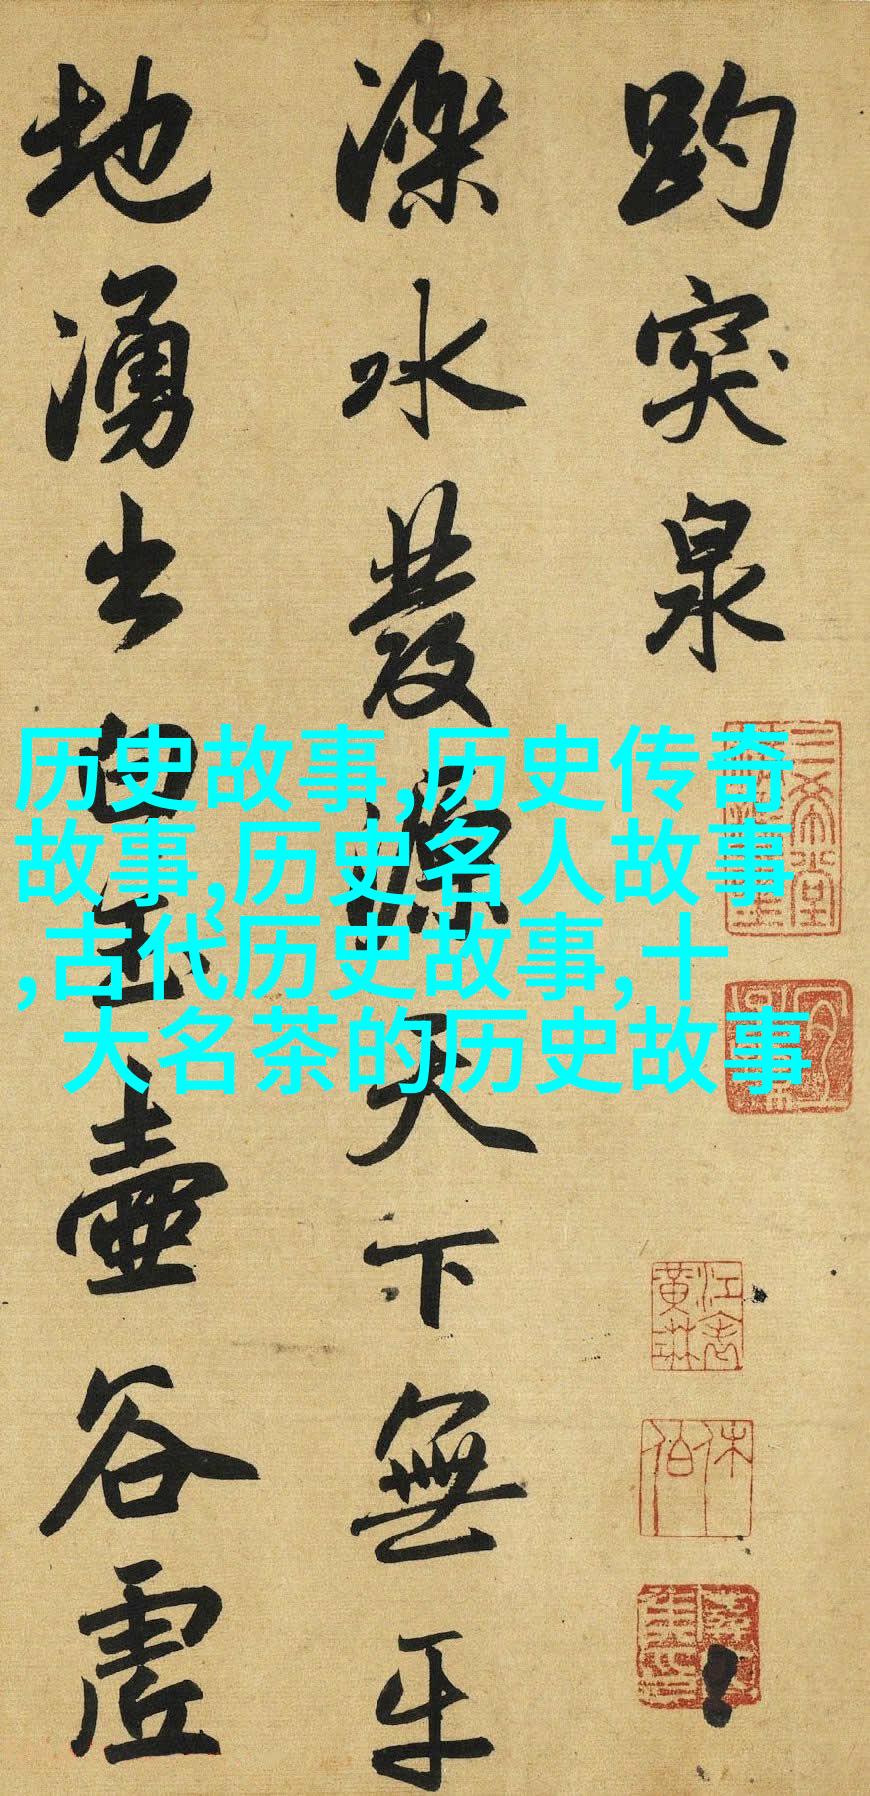 趵突泉
濼水發源天下無平
地湧出白玉壺谷虛
历史故事,历史传奇
故事,历史名人故事
,古代历史故事,十
大名茶的历史故事
三希堂
江表黃琳
休伯